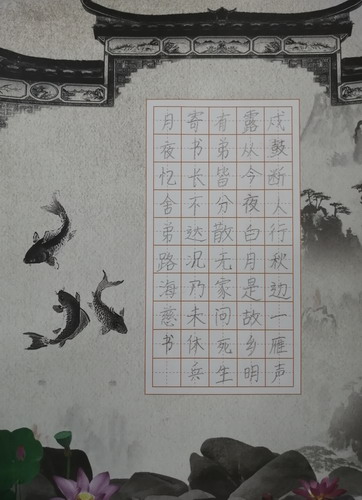 戍鼓断人行秋边一雁声
露从今夜白月是故乡明
有弟皆分散无家问死生
寄书长不达况乃未休兵
月夜忆舍弟路海慈书